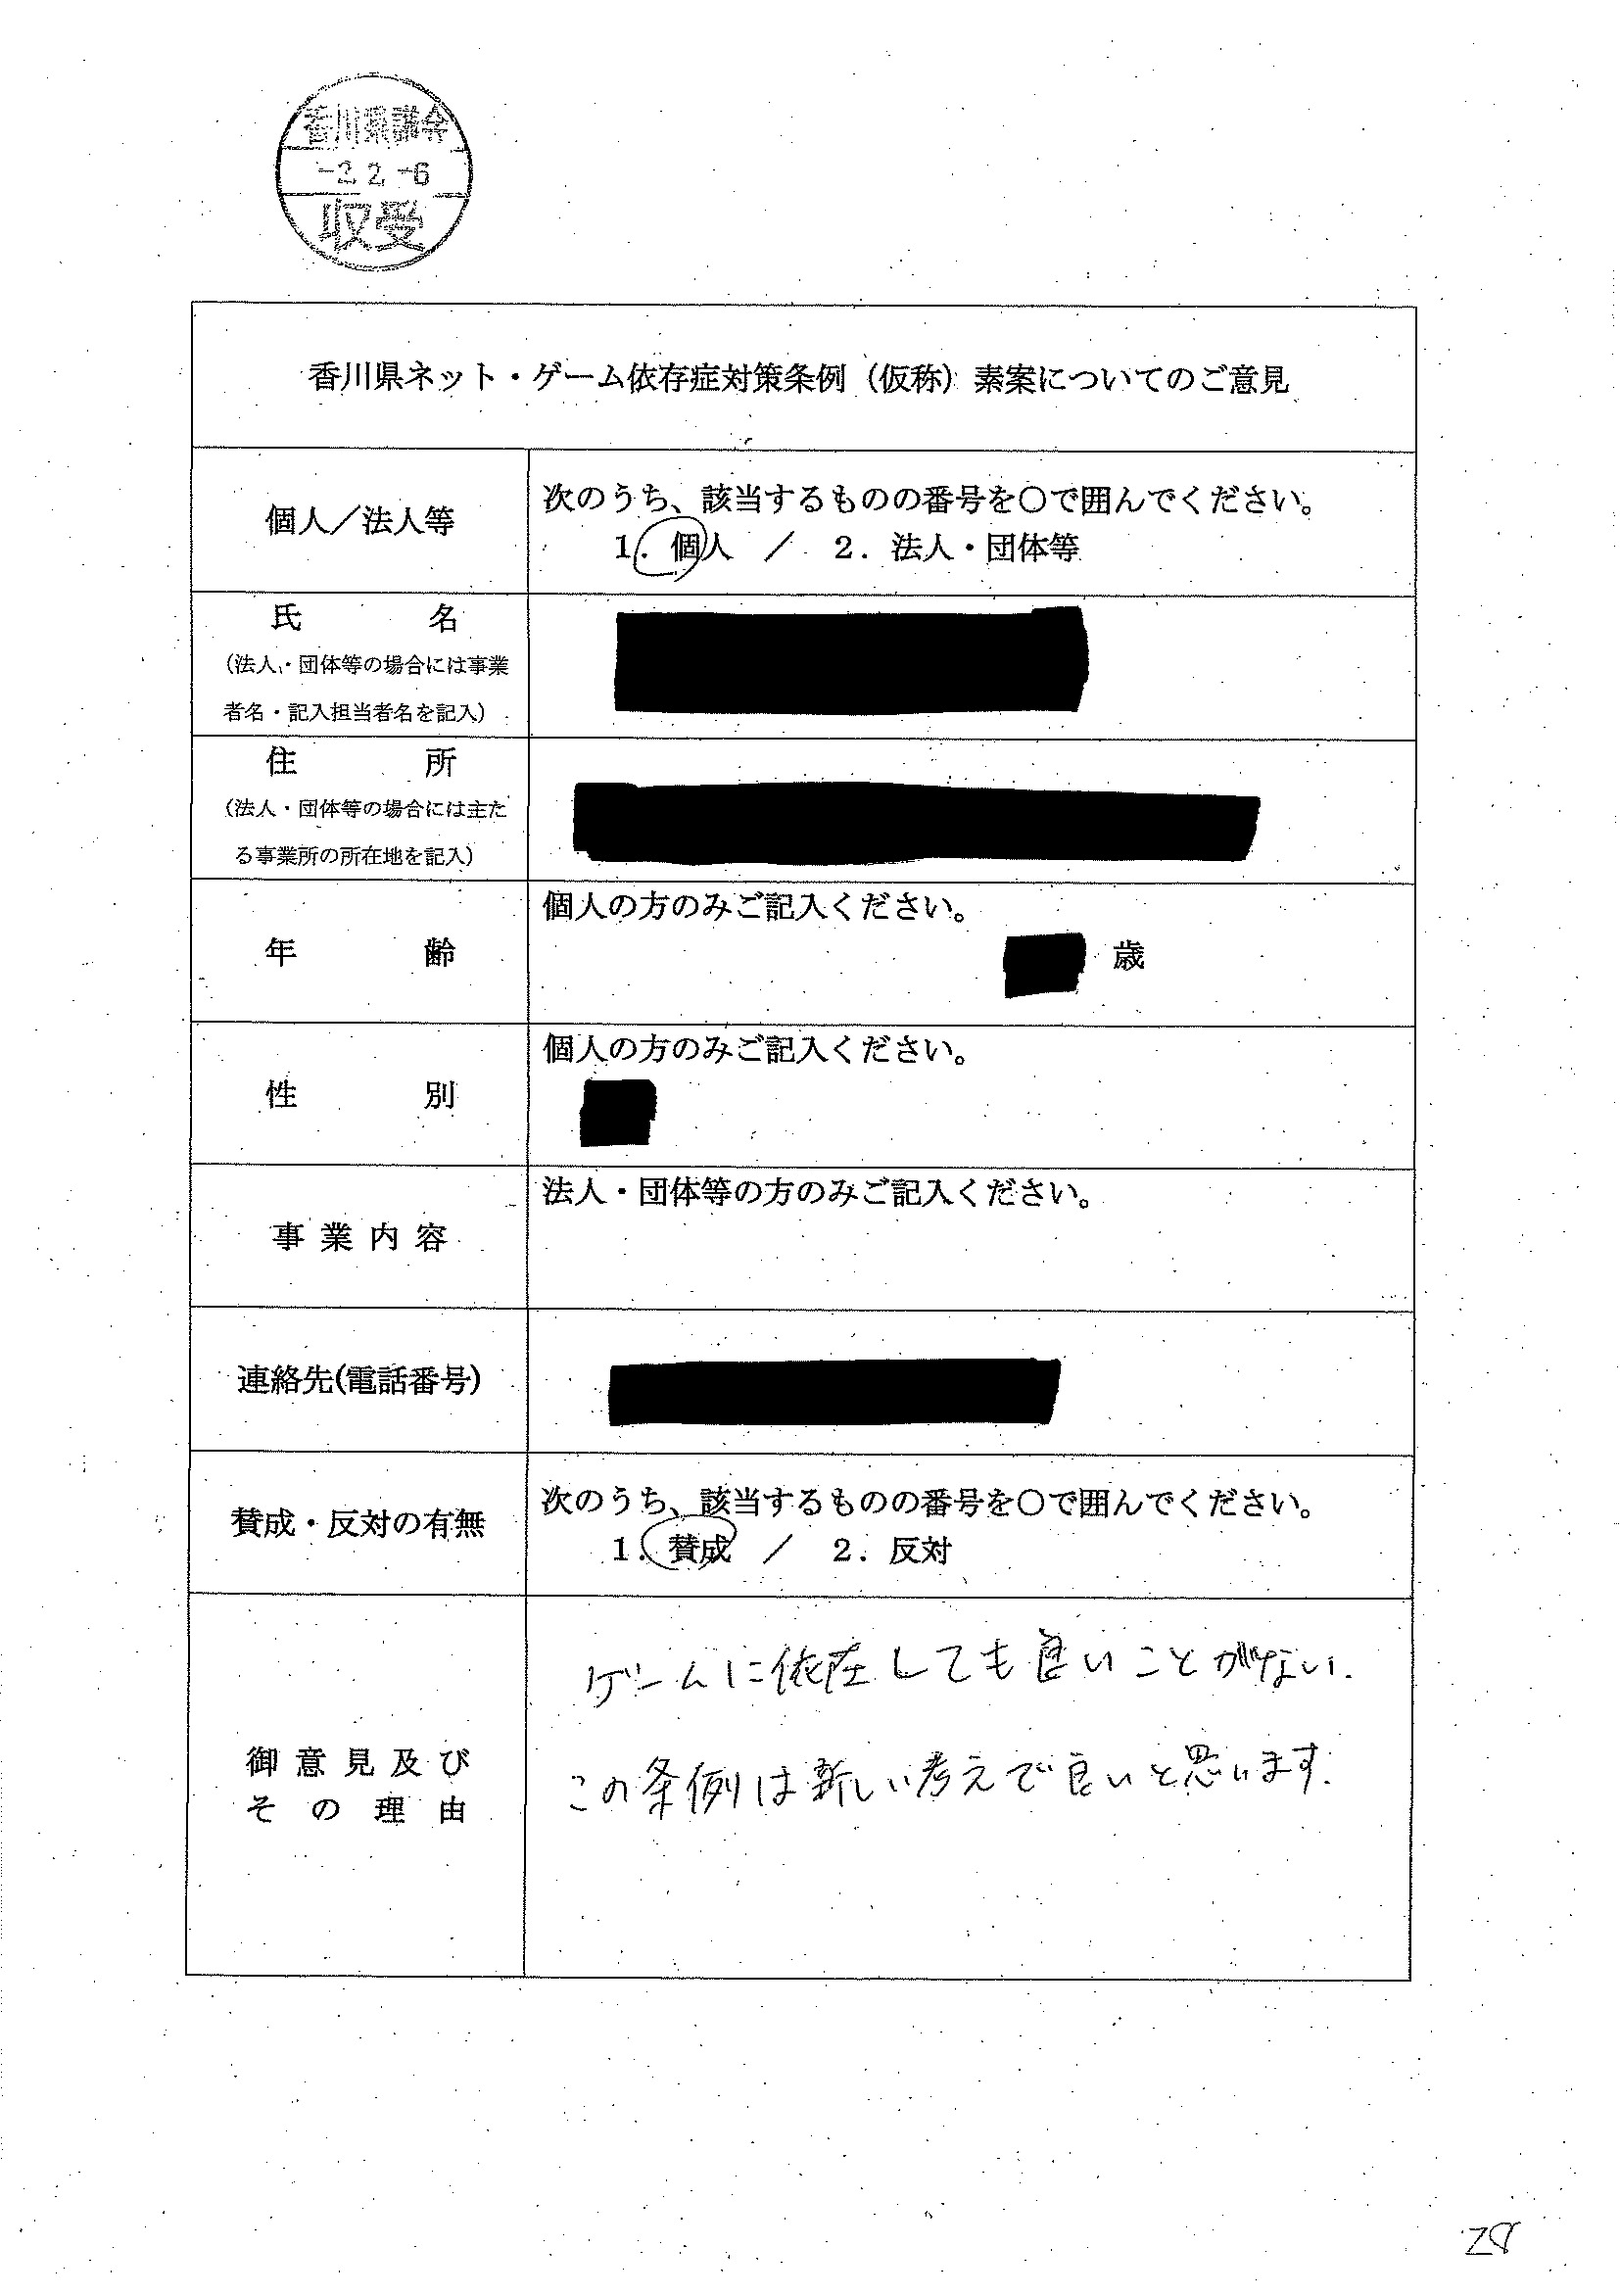 香川県議会
-2.2.-6
収受
香川県ネット・ゲーム依存症対策条例（仮称）素案についてのご意見
個人／法人等
次のうち、該当するものの番号を○で囲んでください。
1．個人　／　2．法人・団体等
氏　名
（法人・団体等の場合には事業
者名・記入担当者名を記入）
住　所
（法人・団体等の場合には主た
る事業所の所在地を記入）
年　齢
個人の方のみご記入ください。
歳
性　別
個人の方のみご記入ください。
事業内容
法人・団体等の方のみご記入ください。
連絡先(電話番号)
賛成・反対の有無
次のうち、該当するものの番号を○で囲んでください。
1．賛成　／　2．反対
御意見及び
その理由
ゲームに依存しても良いことがない.
この条例は新しい考えで良いと思います.
28